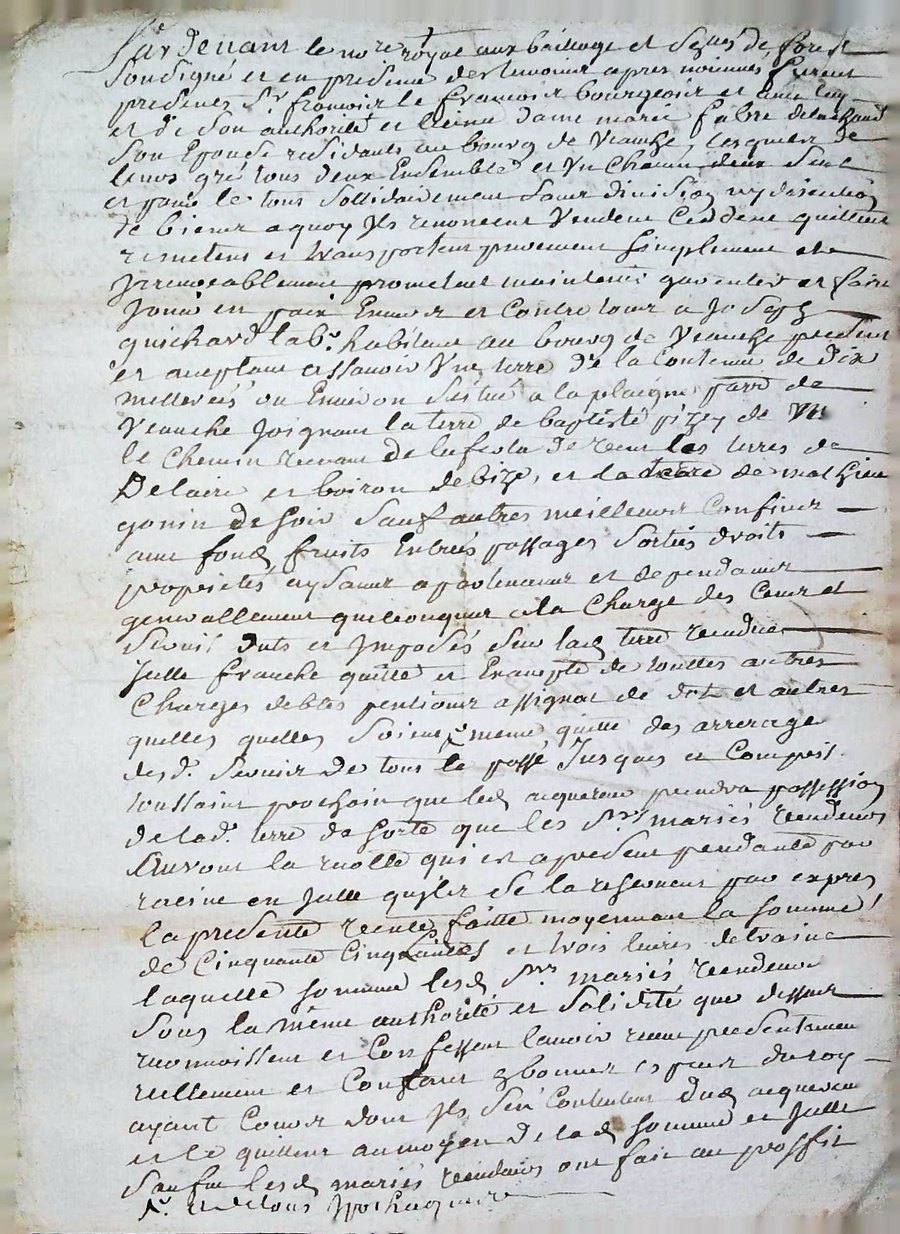 Pardevant le no.re royal aux bailliage et de forest
soussigné et en presence des temoins apres nommés furent
presents Sr françois le françois bourgeois et avec luy
et de son authorité et licence dame marie fabre
son Epouse residants au bourg de Veauche, lesquels de
leurs gré tous deux Ensemble et Un Chacun deux seul
et pour le tout sollidairement sans division ny discution
de biens a quoy Ils renoncent Vendent Ceddent quittent
remettent et transportent purement simplement et
Irrevocablement promettent maintenir garentir et faire
Jouir en paix Envers et Contre tous a Joseph
guichard lab.r habitant au bourg de Veauche present
et aceptant assavoir Une terre De la Contenue de dix
metterées ou Environ Situé a la plaigne parr.e de
Veauche Joignant la terre de baptiste pizey de
le Chemin venant de de vent les terres de
Delaire et boiron de bize, et la terre de mathieu
gonin de soir sauf autres meilleurs Confins
avec fonds fruits Entrés passages sorties droits
proprietés aysances apartenances et dependances
generallement quelconques a la Charge des Cens et
servis Duts et Imposés sur lad. terre vendue
Jcelle franche quitte et Exempte de touttes autres
Charges debtes pentions assignat de dot et autres
quelles quelles soient et meme quitte des arrerage
desd. servis de tout le passé Jusques et Compris
toussaint prochain que led. aquereur prendra possession
de lad. terre de sorte que les S.rs mariés vendeurs
auront la recolte qui est apresent pendante par
racine en Jcelle quils se la reservent par exprès
la presente vente faitte moyennant la somme
de Cinquante Cinq livres et trois livres detraine
laquelle somme lesd. S.rs mariés vendeurs
sous la même authorité et solidité que dessus
reconnoissent et Confessent lavoir receu presentement
reellement et Contant en bonnes especes du roy
ayant Cours dont Ils sen Contentent dud. acquereur
et le quittent au moyen de lad. somme et Jcelle
lesd. mariés vendeurs ont fait au proffit
et de tous hypothequaire